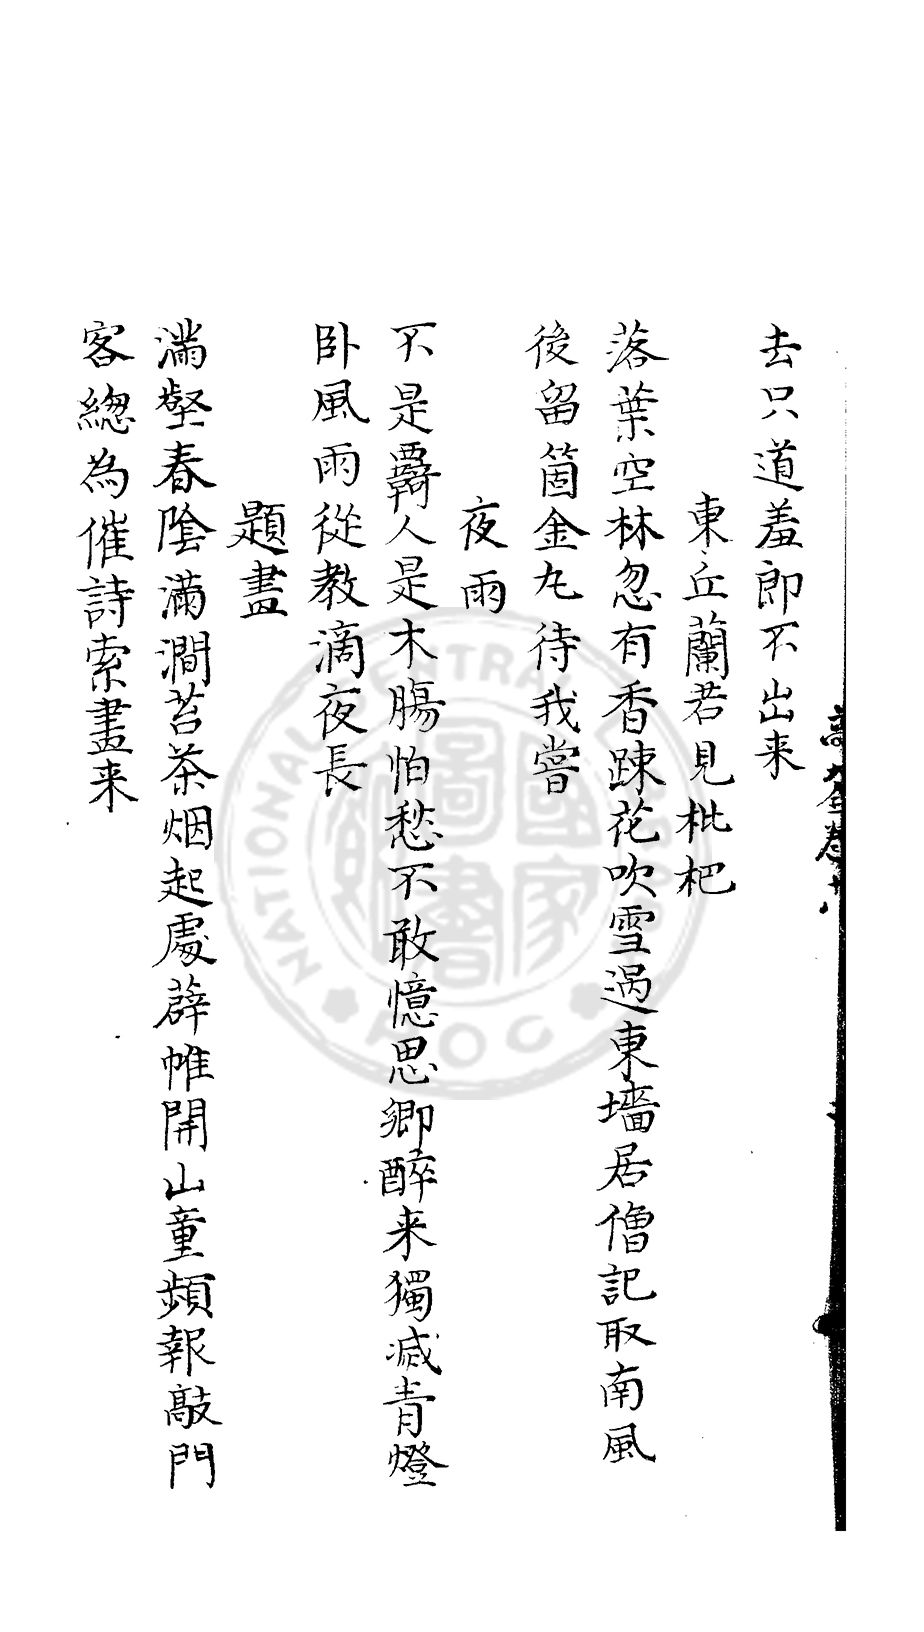 去只道羞郎不出来
東丘蘭若見枇杷
落葉空林忽有香踈花吹雪過東墻居僧記取南風
後留箇金丸待我嘗
夜雨
不是羇人是木腸怕愁不敢憶思卿醉来獨滅青燈
卧風雨從教滴夜長
題畫
滿壑春陰滿澗苔茶烟起處薜帷開山童頻報敲門
客總為催詩索畫来
NATIONAL CENTRAL
ROC
國家圖書館